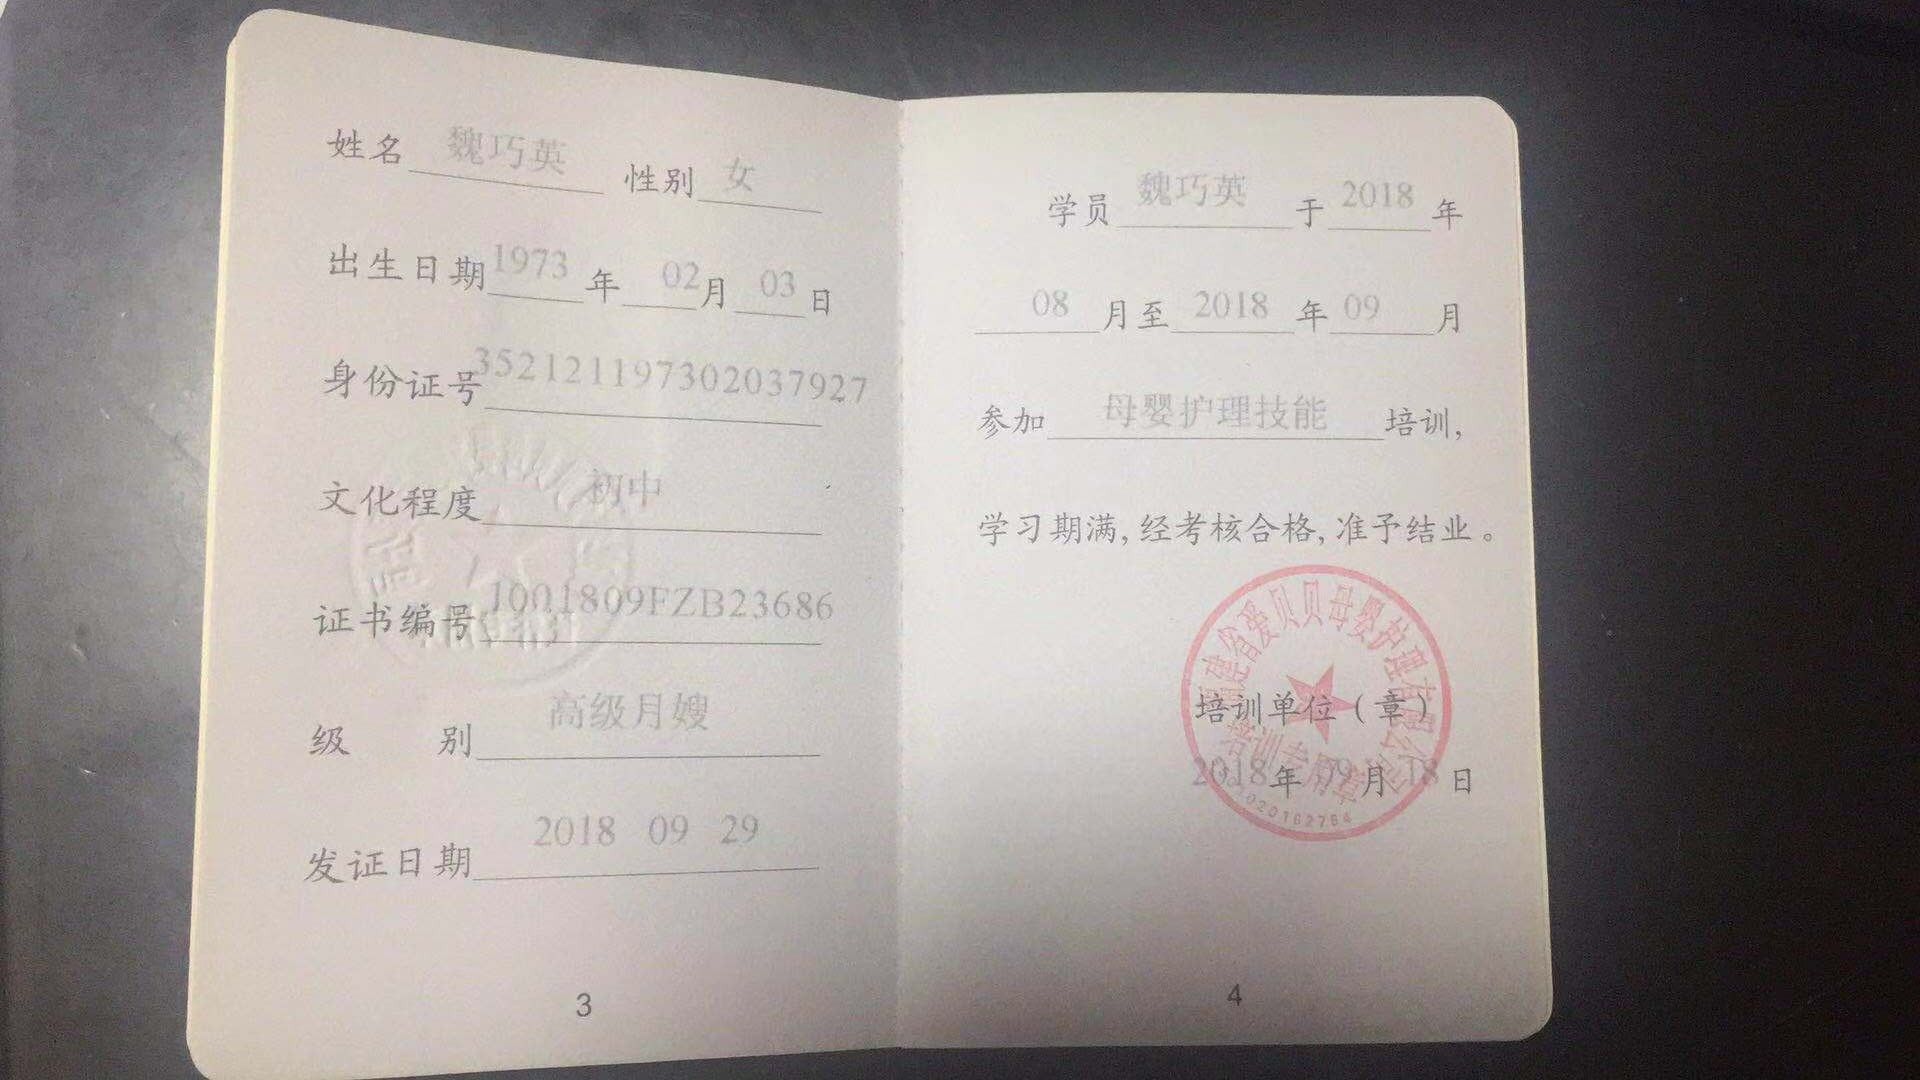 姓名 魏巧英 性别 女
出生日期 1973 年 02 月 03 日
身份证号 352121197302037927
文化程度 初中
证书编号 1001809FZB23686
级 别 高级月嫂
发证日期 2018 09 29
3
学员 魏巧英 于 2018 年
08 月至 2018 年 09 月
参加 母婴护理技能 培训,
学习期满,经考核合格,准予结业。
建省爱贝贝母婴护理有限公司
培训单位(章)
培训专用章
2018 年 09 月 18 日
4